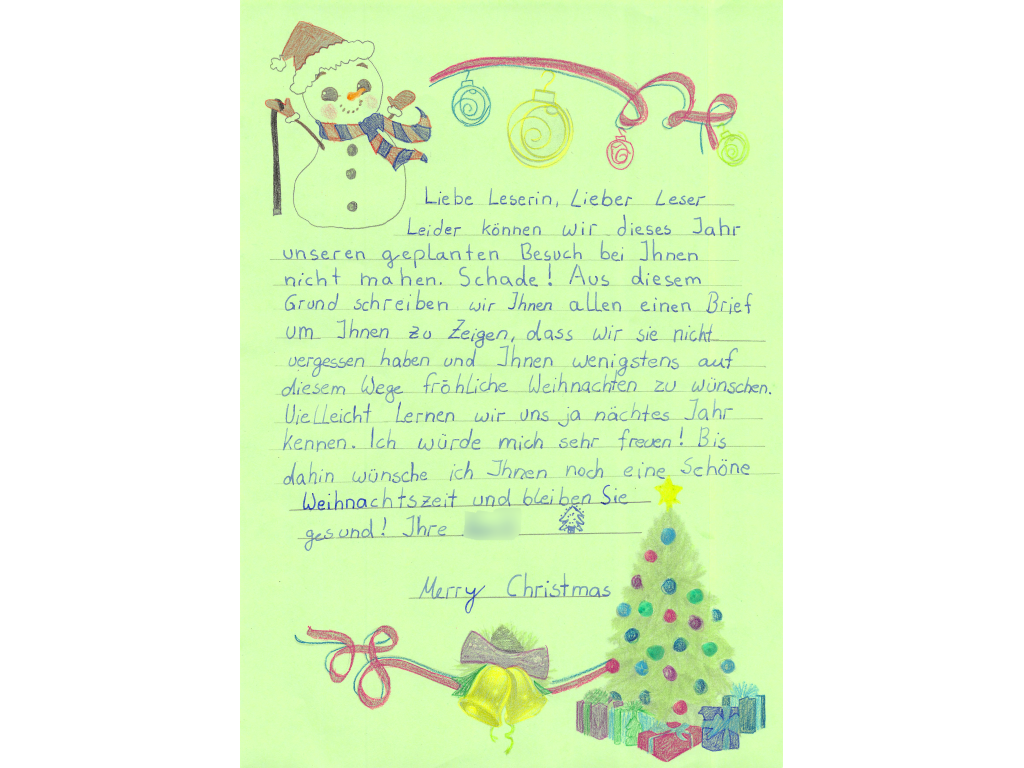 Liebe Leserin, Lieber Leser
Leider können wir dieses Jahr
unseren geplanten Besuch bei Ihnen
nicht mahen. Schade! Aus diesem
Grund schreiben wir Ihnen allen einen Brief
um Ihnen zu Zeigen, dass wir sie nicht
vergessen haben und Ihnen wenigstens auf
diesem Wege fröhliche Weihnachten zu wünschen.
Vielleicht Lernen wir uns ja nächtes Jahr
kennen. Ich würde mich sehr freuen! Bis
dahin wünsche ich Ihnen noch eine Schöne
Weihnachtszeit und bleiben Sie
gesund! Ihre
Merry Christmas